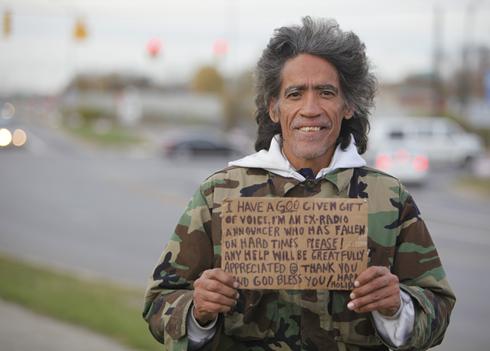 I HAVE A GOD GIVEN GIFT
OF VOICE. I'M AN EX-RADIO
ANNOUNCER WHO HAS FALLEN
ON HARD TIMES. PLEASE!
ANY HELP WILL BE GREATFULLY
APPRECIATED @ THANK YOU
AND GOD BLESS YOU! HAPPY
HOLIDAY